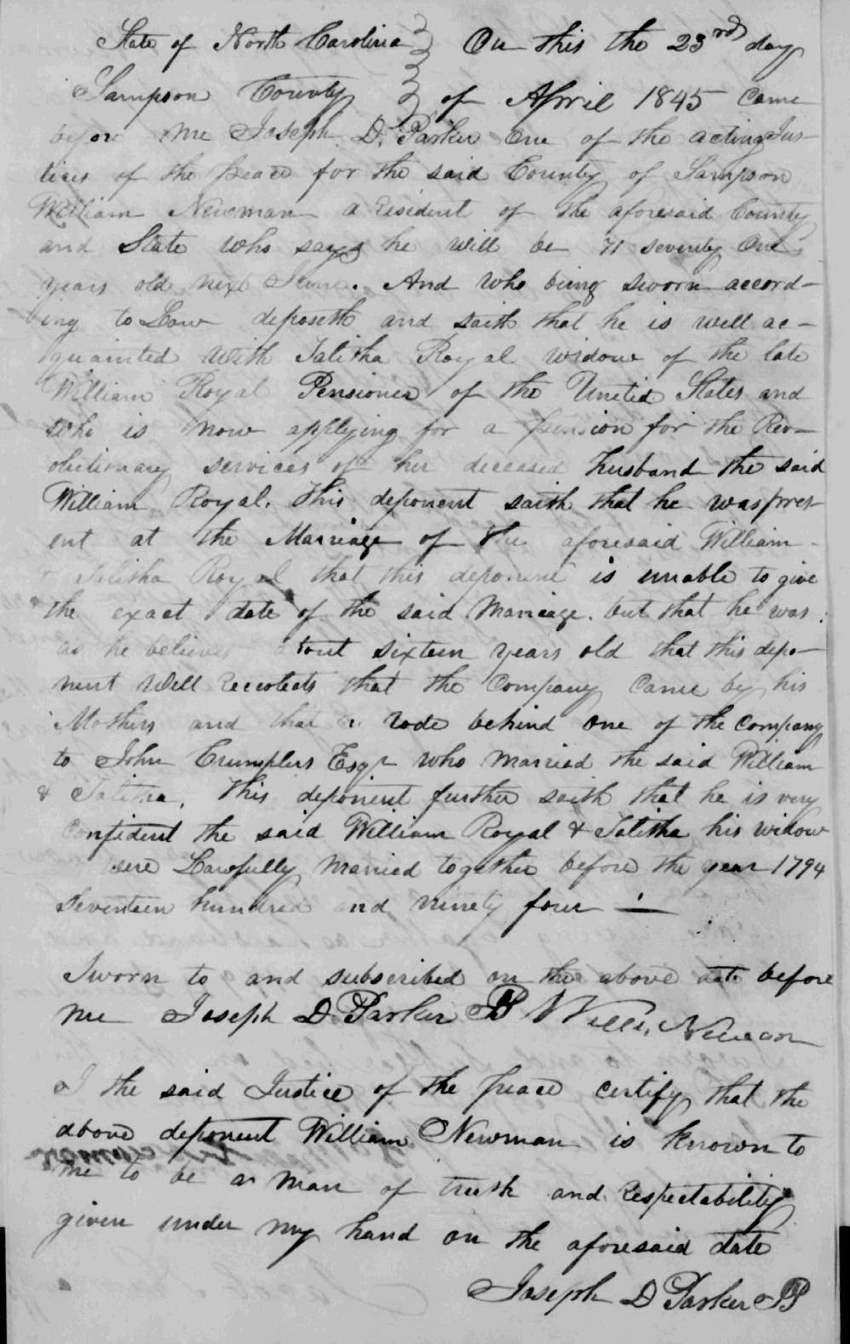 State of North Carolina } On this the 23rd day
Sampson County } of April 1845 Came
before me Joseph D. Parker One of the acting Jus-
tices of the peace for the said County of Sampson
William Newman a resident of the aforesaid County
and State who says he will be 71 seventy One
years old next June. And who being sworn accord-
ing to Law deposeth and saith that he is well ac-
quainted with Talitha Royal widow of the late
William Royal Pensioner of the United States and
who is now applying for a pension for the Rev-
olutionary services of her deceased husband the said
William Royal. This deponent saith that he was pres-
ent at the Marriage of the aforesaid William
& Talitha Royal that this deponent is unable to give
the exact date of the said Marriage. but that he was
as he believes about sixteen years old that this depo-
nent Well recolects that the Company Came by his
Mothers and that he rode behind one of the Company
to John Crumplers Esqr who married the said William
& Talitha. This deponent further saith that he is very
Confident the said William Royal & Talitha his widow
were Lawfully married together before the year 1794
Seventeen hundred and ninety four —
Sworn to and subscribed on the above date before
me Joseph D Parker JP Willi. Newman
I the said Justice of the peace certify that the
above deponent William Newman is known to
me to be a man of truth and Respectability
given under my hand on the aforesaid date
Joseph D Parker JP